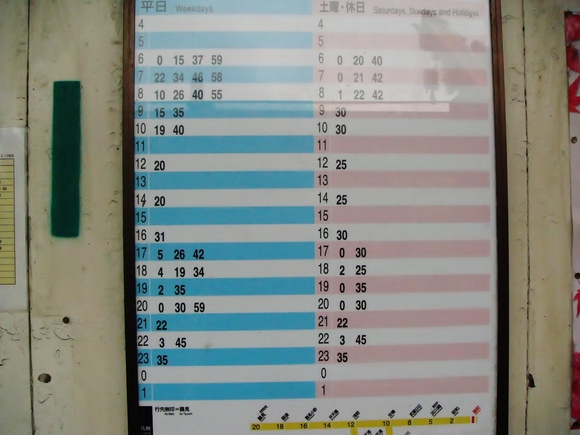 平日 Weekdays 土曜・休日 Saturdays, Sundays and Holidays
4 4
5 5
6 0 15 37 59 6 0 20 40
7 22 34 46 58 7 0 21 42
8 10 26 40 55 8 1 22 42
9 15 35 9 30
10 19 40 10 30
11 11
12 20 12 25
13 13
14 20 14 25
15 15
16 31 16 30
17 5 26 42 17 0 30
18 4 19 34 18 2 25
19 2 35 19 0 35
20 0 30 59 20 0 30
21 22 21 22
22 3 45 22 3 45
23 35 23 35
0 0
1 1
行先無印=鶴見
20 18 16 14 12 10 8 5 2